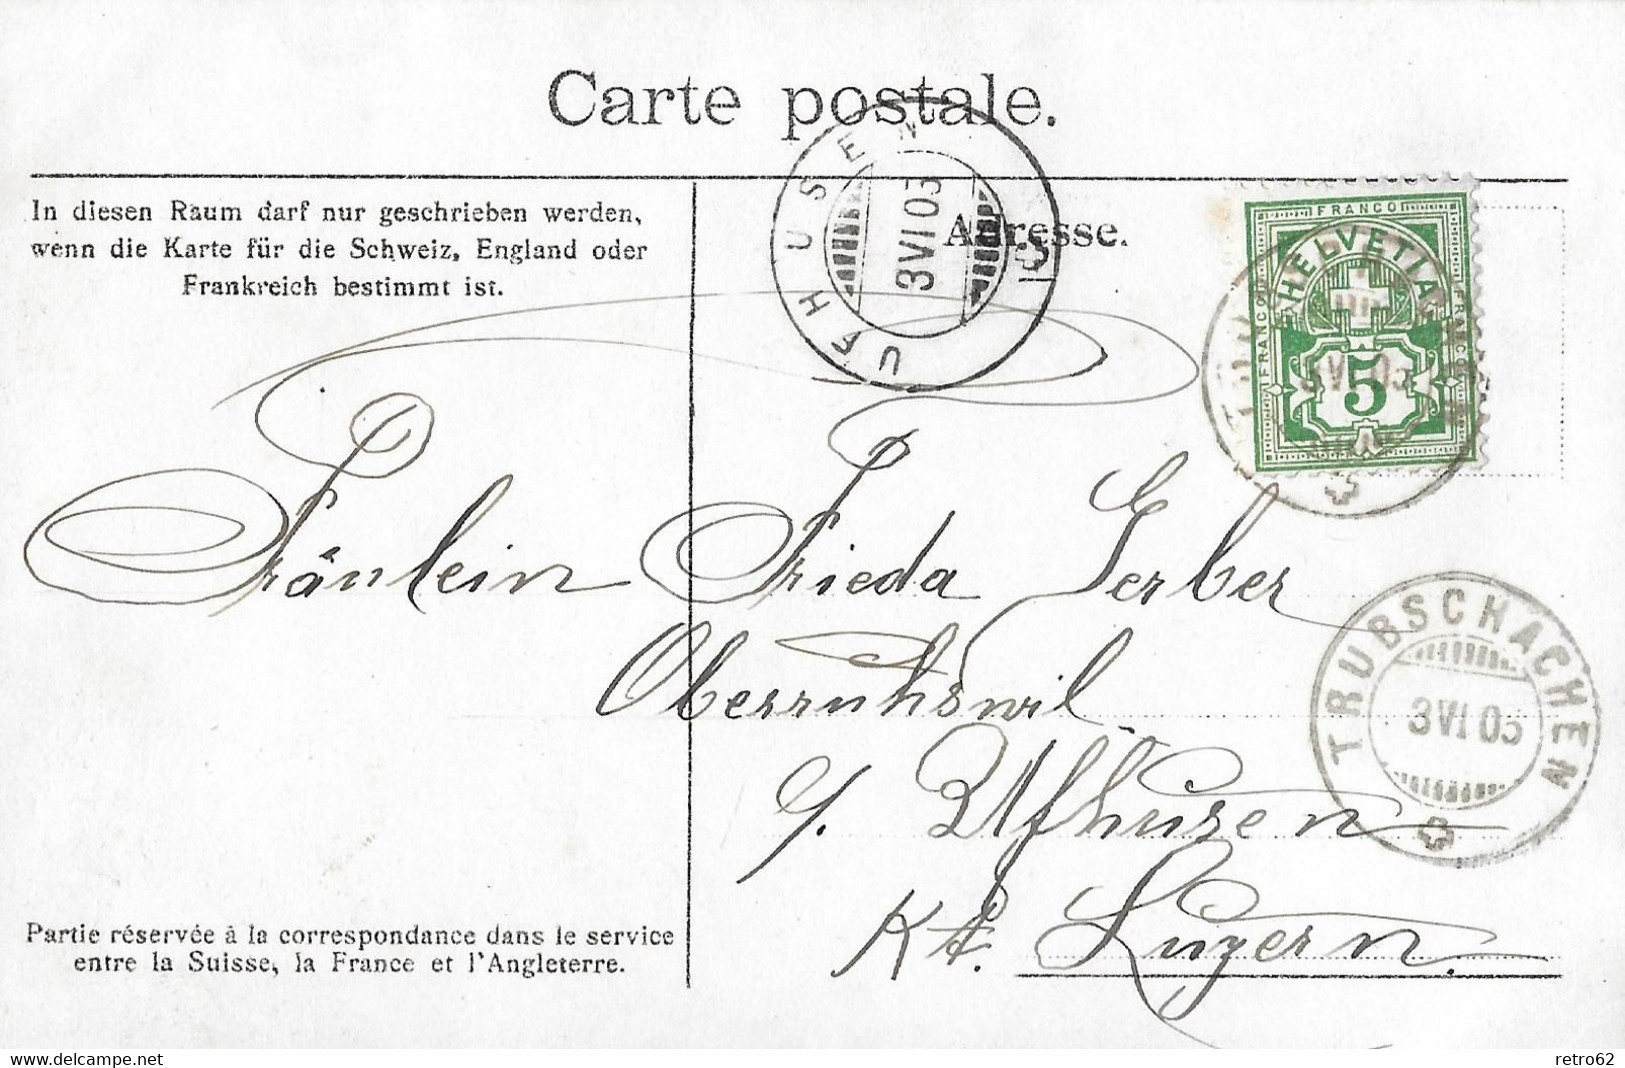 Carte postale.
In diesen Raum darf nur geschrieben werden,
wenn die Karte für die Schweiz, England oder
Frankreich bestimmt ist.
UFHUSEN
3 VI 05
Adresse.
FRANCO
FRANCO
FRANCO
HELVETIA
5
Fräulein Frieda Gerber
Oberruhswil
b/. Ufhusen
Kt. Luzern.
TRUBSCHACHEN
3 VI 05
Partie réservée à la correspondance dans le service
entre la Suisse, la France et l'Angleterre.
delcampe.net
retro62